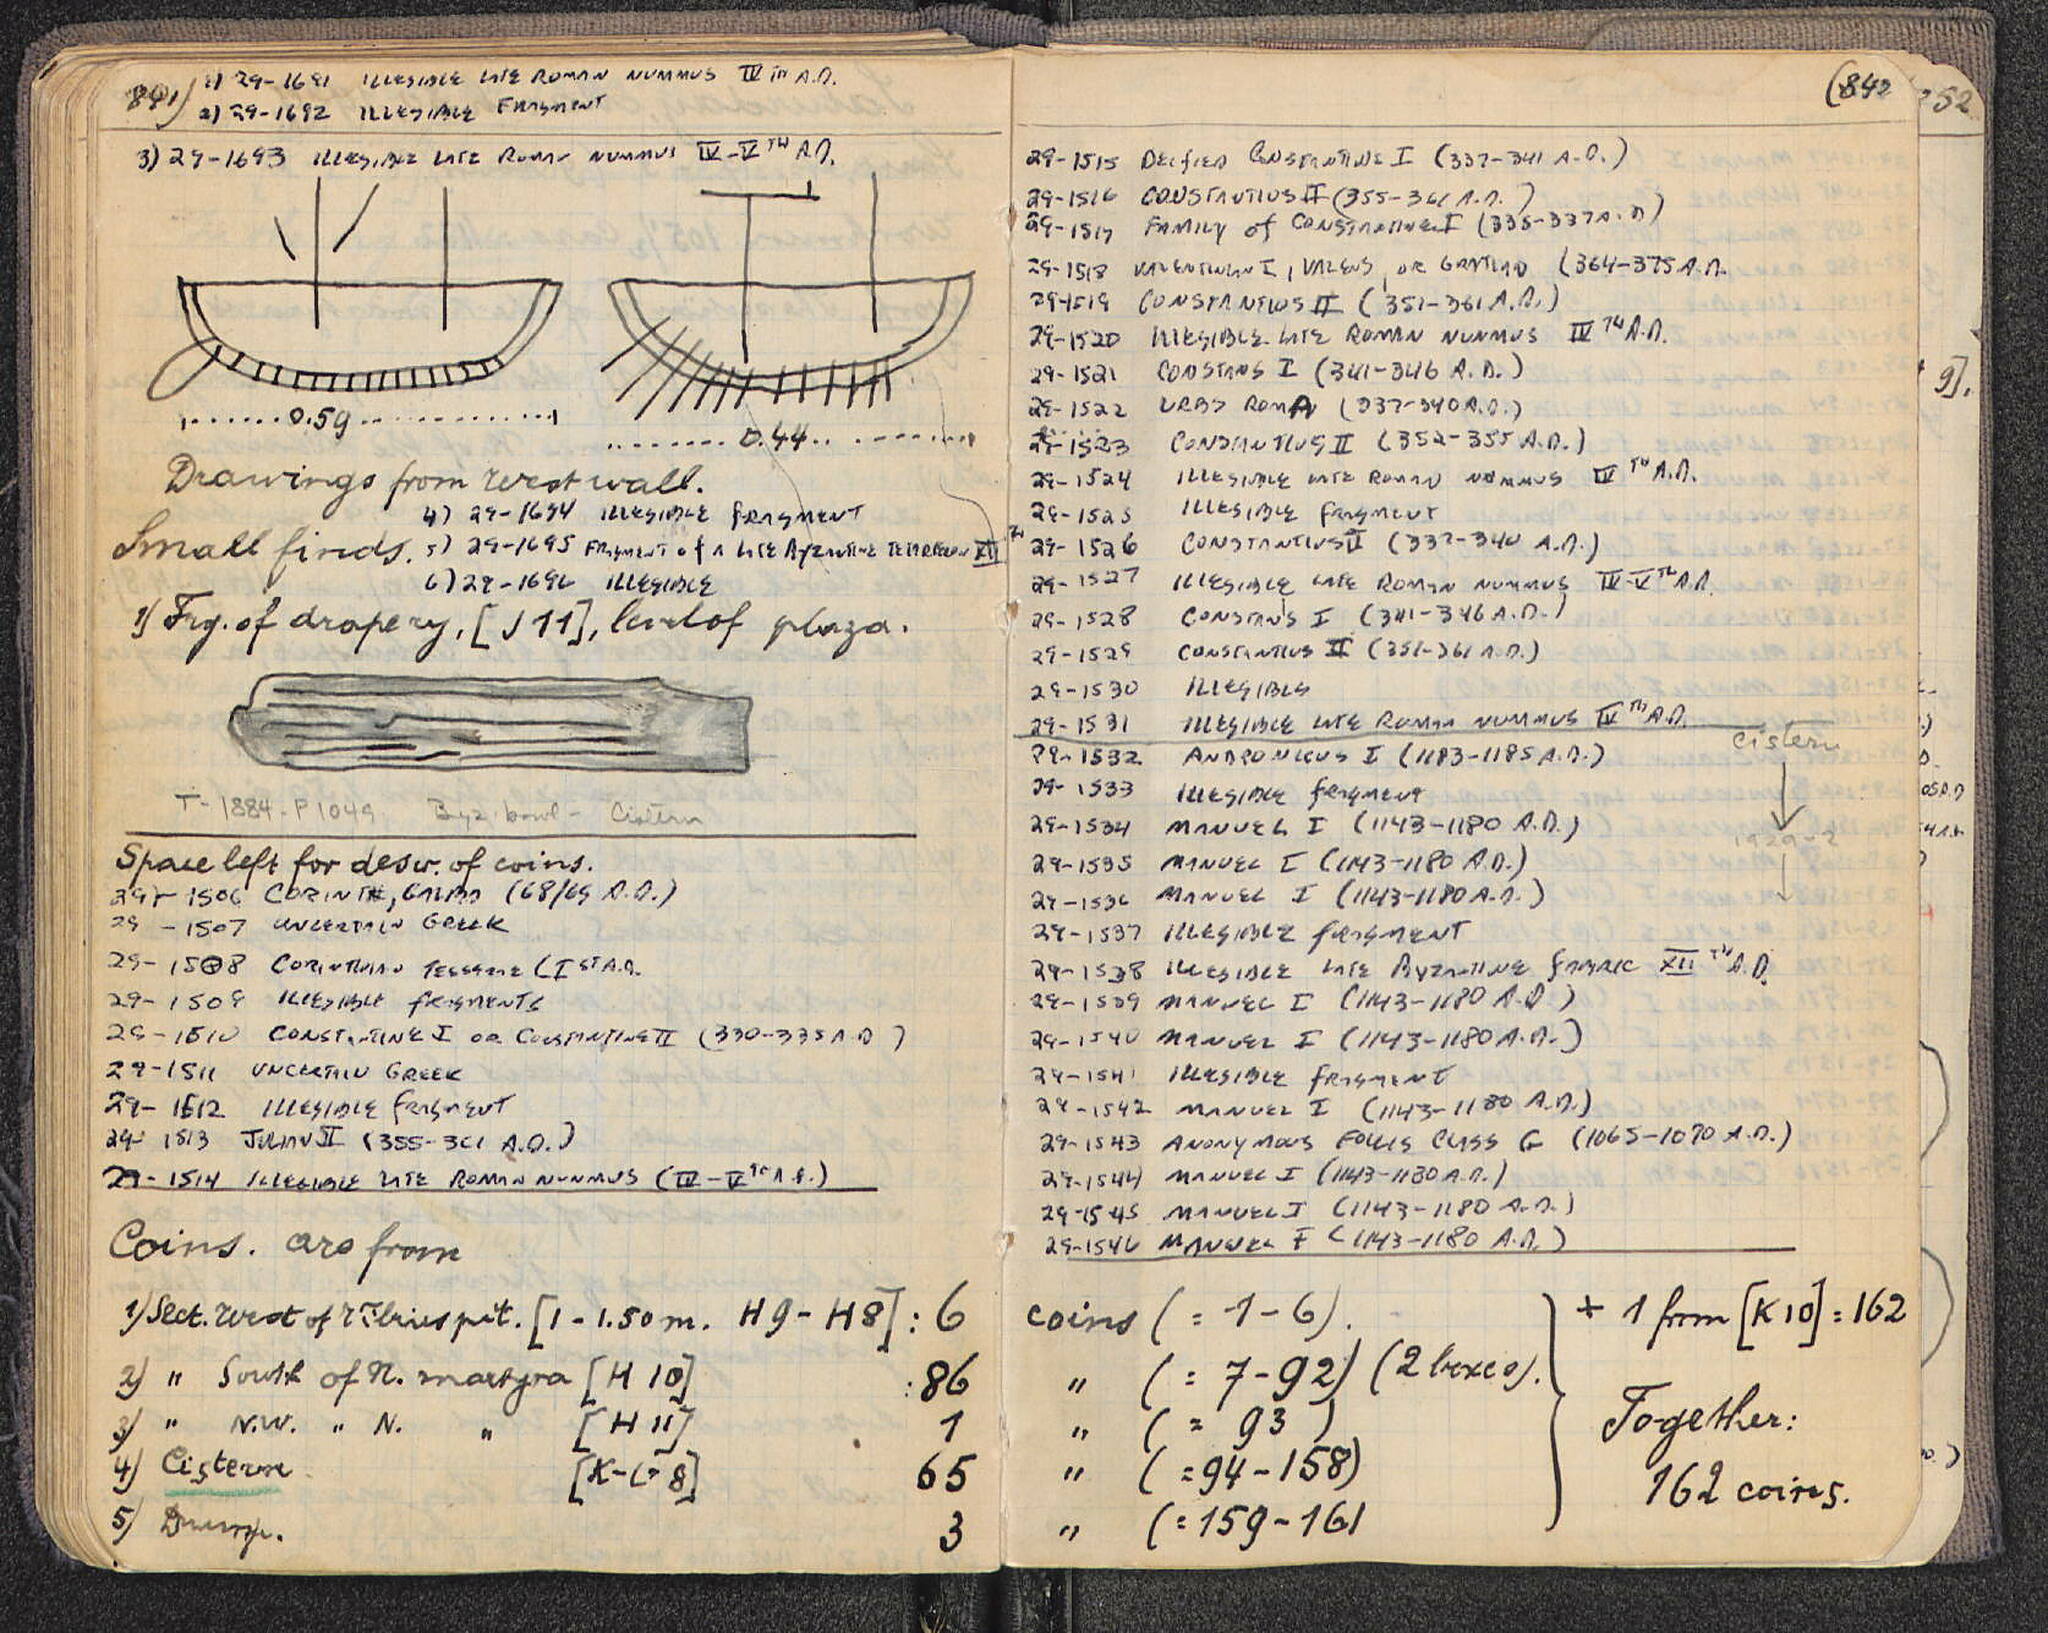 841)
1) 29-1691 ILLEGIBLE LATE ROMAN NUMMUS IV TH A.D.
2) 29-1692 ILLEGIBLE FRAGMENT
3) 29-1693 ILLEGIBLE LATE ROMAN NUMMUS IV-V TH A.D.
0.59
0.44
Drawings from west wall.
4) 29-1694 ILLEGIBLE FRAGMENT
Small finds. 5) 29-1695 FRAGMENT of A LATE BYZANTINE TETARTERON XII TH
6) 29-1696 ILLEGIBLE
1) Frg. of drapery, [J 11], level of plaza.
T-1884-P1049 Byz. bowl - Cistern
Space left for descr. of coins.
29-1506 CORINTH, GALBA (68/69 A.D.)
29-1507 UNCERTAIN GREEK
29-1508 CORINTHIAN TESSERAE (I ST A.D.
29-1509 ILLEGIBLE FRAGMENTS
29-1510 CONSTANTINE I OR CONSTANTINE II (330-335 A.D)
29-1511 UNCERTAIN GREEK
29-1512 ILLEGIBLE FRAGMENT
29-1513 JULIAN II (355-361 A.D.)
29-1514 ILLEGIBLE LATE ROMAN NUMMUS (IV-V TH A.D.)
Coins. are from
1) Sect. West of [1-1.50 m. H9-H8] : 6
2) " South of N. martyra [H 10] : 86
3) " N.W. " N. " [H 11] 1
4) Cistern 65
5) Dump. 3
(842
29-1515 DEIFIED CONSTANTINE I (337-341 A.D.)
29-1516 CONSTANTIUS II (355-361 A.D.)
29-1517 FAMILY of CONSTANTINE I (335-337 A.D)
29-1518 VALENTINIAN I, VALENS, OR GRATIAN (364-375 A.D.
29-1519 CONSTANTIUS II (351-361 A.D.)
29-1520 ILLEGIBLE LATE ROMAN NUMMUS IV TH A.D.
29-1521 CONSTANS I (341-346 A.D.)
29-1522 URBS ROMA (337-340 A.D.)
29-1523 CONSTANTIUS II (352-355 A.D.)
29-1524 ILLEGIBLE LATE ROMAN NUMMUS IV TH A.D.
29-1525 ILLEGIBLE FRAGMENT
29-1526 CONSTANTIUS II (337-340 A.D.)
29-1527 ILLEGIBLE LATE ROMAN NUMMUS IV-V TH A.D.
29-1528 CONSTANS I (341-346 A.D.)
29-1529 CONSTANTIUS II (351-361 A.D.)
29-1530 ILLEGIBLE
29-1531 ILLEGIBLE LATE ROMAN NUMMUS IV TH A.D.
cistern
29-1532 ANDRONICUS I (1183-1185 A.D.)
29-1533 ILLEGIBLE FRAGMENT
29-1534 MANUEL I (1143-1180 A.D.)
1929-2
29-1535 MANUEL I (1143-1180 A.D.)
29-1536 MANUEL I (1143-1180 A.D.)
29-1537 ILLEGIBLE FRAGMENT
29-1538 ILLEGIBLE LATE BYZANTINE FABRIC XII TH A.D.
29-1539 MANUEL I (1143-1180 A.D)
29-1540 MANUEL I (1143-1180 A.D.)
29-1541 ILLEGIBLE FRAGMENT
29-1542 MANUEL I (1143-1180 A.D.)
29-1543 ANONYMOUS FOLLIS CLASS G (1065-1070 A.D.)
29-1544 MANUEL I (1143-1180 A.D.)
29-1545 MANUEL I (1143-1180 A.D.)
29-1546 MANUEL I (1143-1180 A.D.)
coins (= 1-6).
" (= 7-92) (2 boxes).
" (= 93)
" (= 94-158)
" (= 159-161
+ 1 from [K 10] = 162
Together:
162 coins.
52
9].